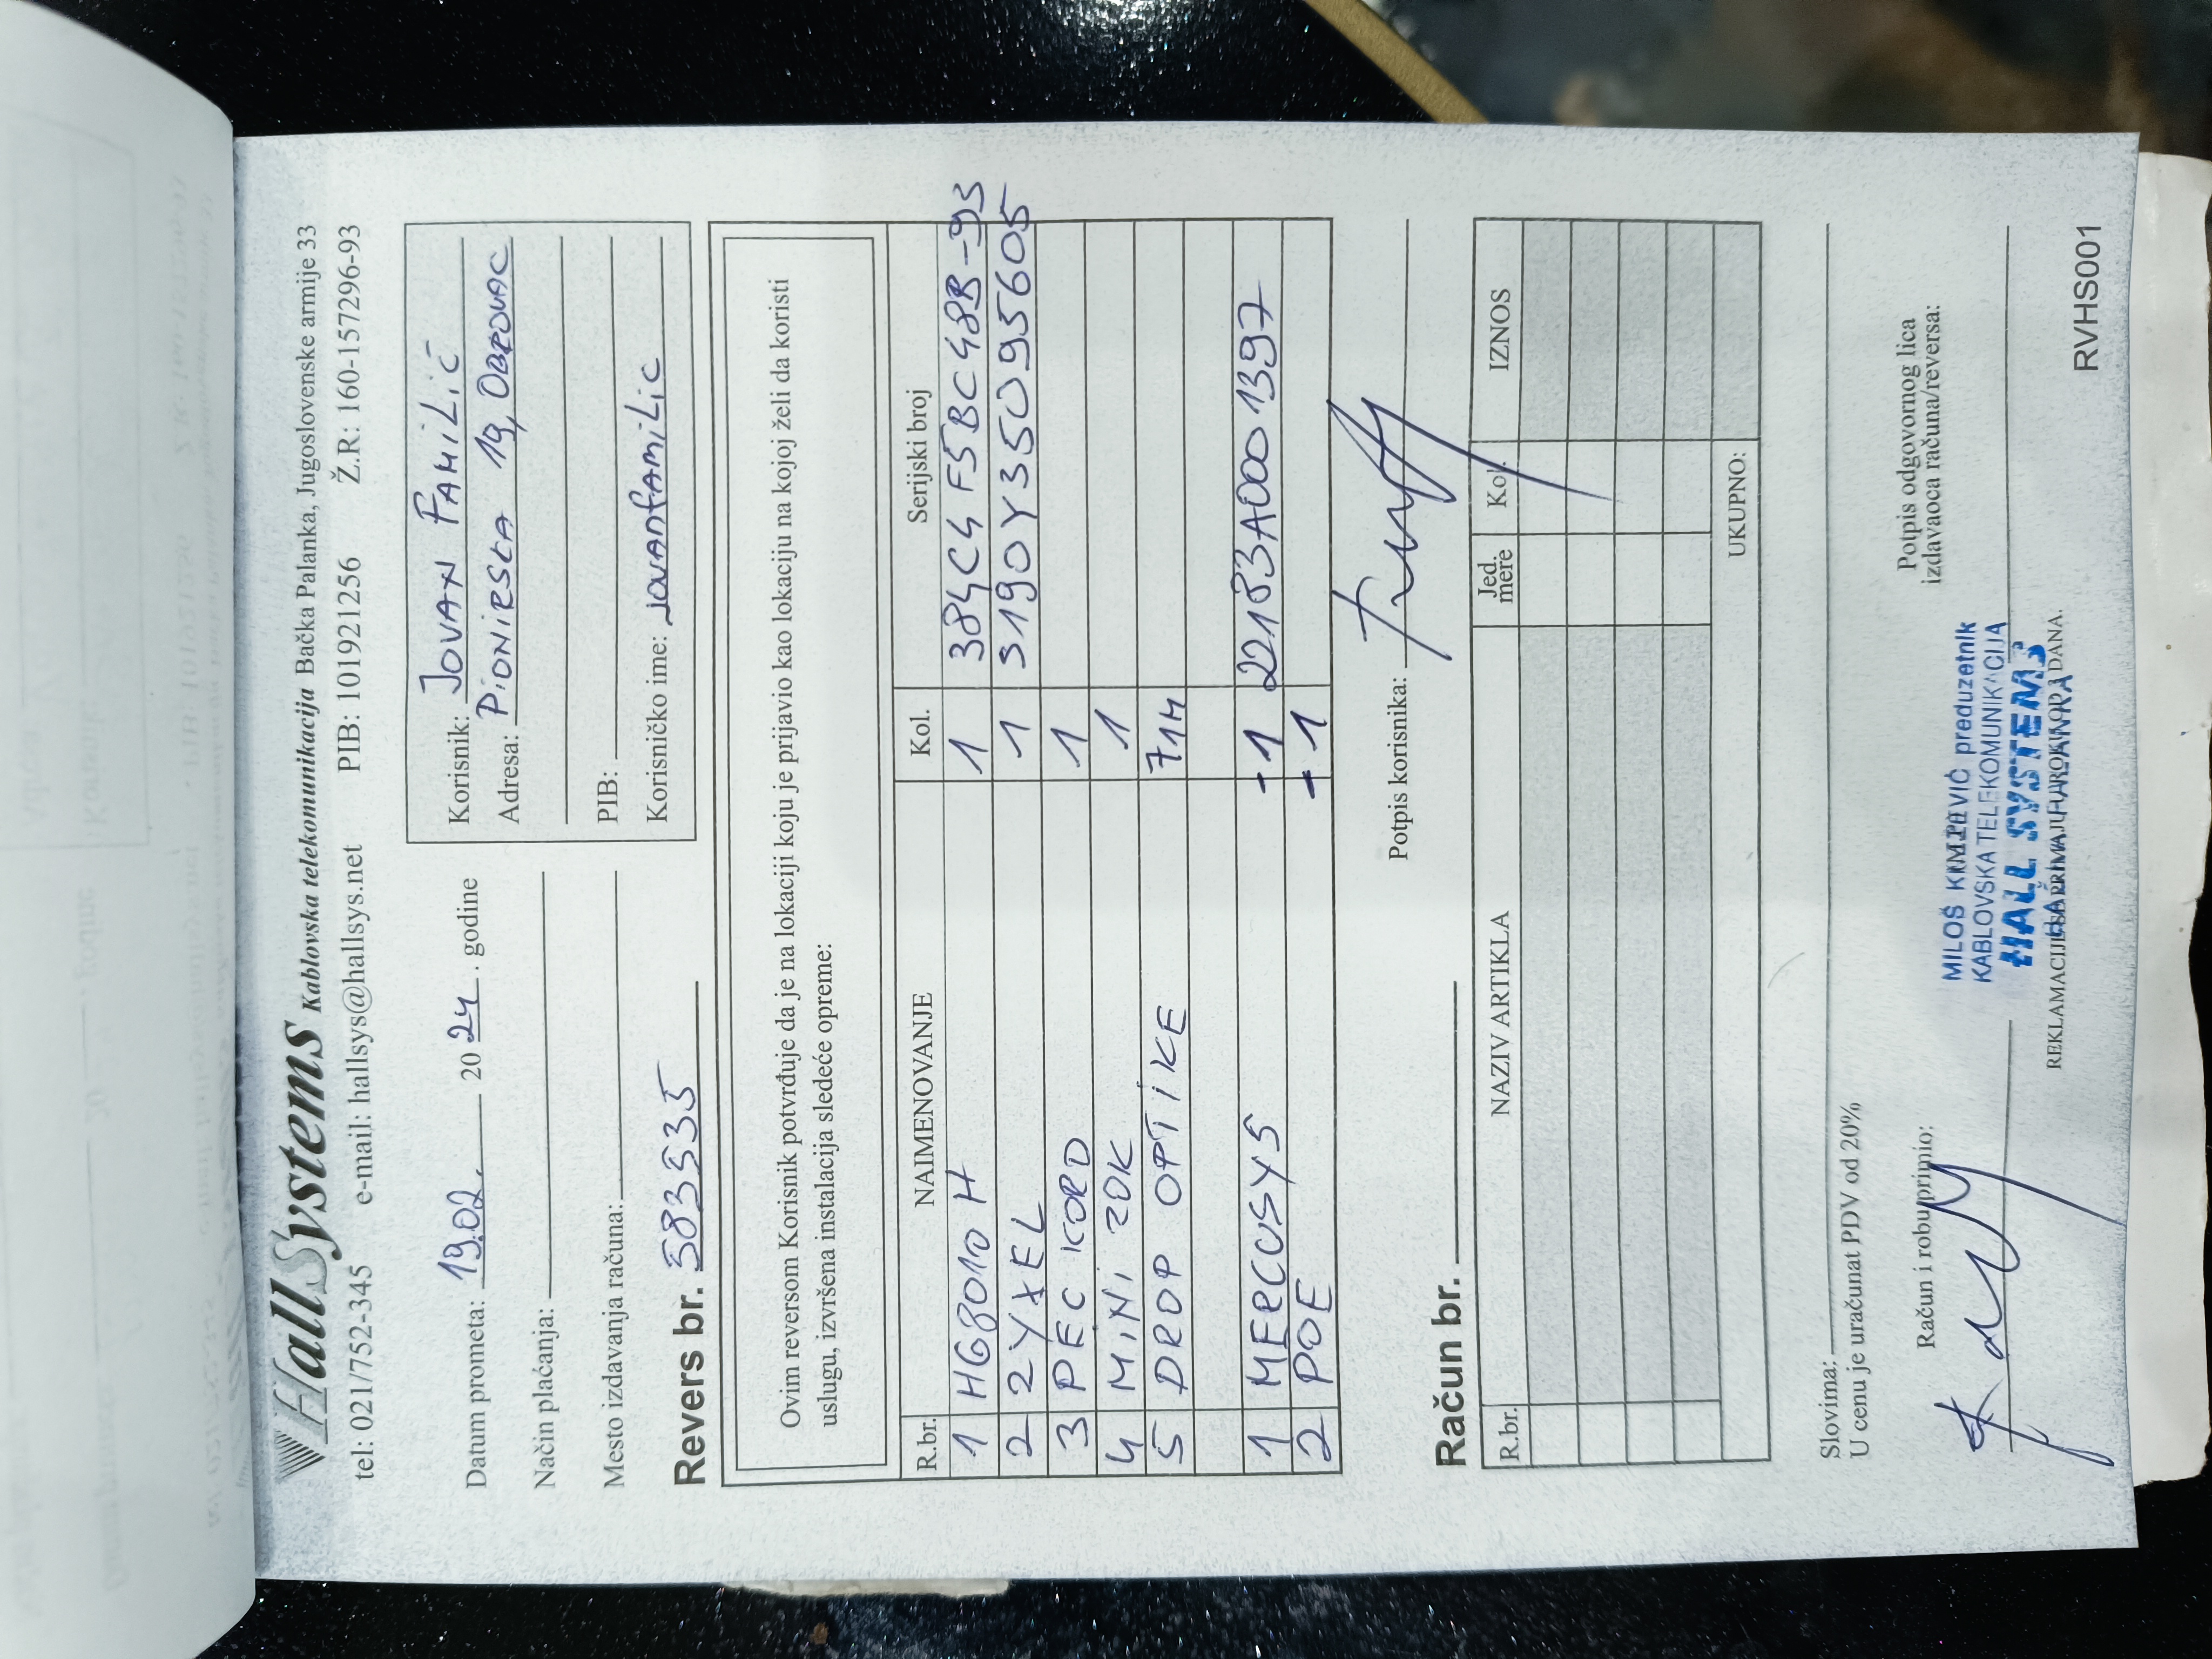 HallSystems Kablovska telekomunikacija Bačka Palanka, Jugoslovenske armije 33
tel: 021/752-345 e-mail: hallsys@hallsys.net PIB: 101921256 Ž.R: 160-157296-93
Datum prometa: 19.02. 2024. godine
Način plaćanja:
Mesto izdavanja računa:
Korisnik: JOVAN FAMiLiĆ
Adresa: PiONiRSKA 19, OBROVAC
PIB:
Korisničko ime: JOVANFAMiLiC
Revers br. 383535
Ovim reversom Korisnik potvrđuje da je na lokaciji koju je prijavio kao lokaciju na kojoj želi da koristi
uslugu, izvršena instalacija sledeće opreme:
R.br. NAIMENOVANJE Kol. Serijski broj
1 HG8010H 1 384C4F5BC48B-93
2 ZYXEL 1 S190Y35095605
3 PEC KORD 1
4 MiNi ZOK 1
5 DROP OPTiKE 71M
1 MERCUSYS -1 22183A0001397
2 POE -1
Potpis korisnika:
Račun br.
R.br. NAZIV ARTIKLA Jed. mere Kol. IZNOS
UKUPNO:
Slovima:
U cenu je uračunat PDV od 20%
Račun i robu primio:
Potpis odgovornog lica
izdavaoca računa/reversa:
MILOŠ preduzetnik
KABLOVSKA TELEKOMUNIKACIJA
HALL SYSTEMS
REKLAMACIJE SE PRIMAJU U ROKU OD 3 DANA.
RVHS001